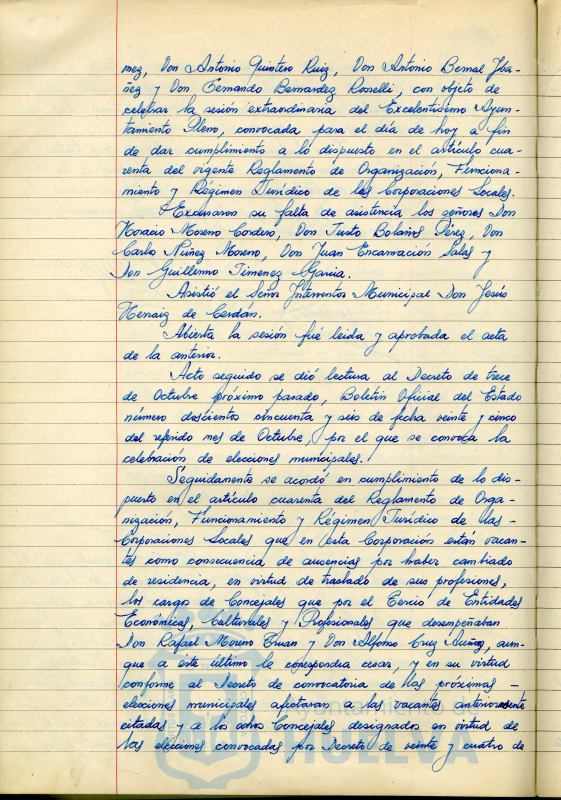 mez, Don Antonio Quintero Ruiz, Don Antonio Bernal Yba-
ñez y Don Fernando Bernardez Rosselli, con objeto de
celebrar la sesión extraordinaria del Excelentísimo Ayun-
tamiento Pleno, convocada para el día de hoy a fin
de dar cumplimiento a lo dispuesto en el artículo cua-
renta del vigente Reglamento de Organización, Funciona-
miento y Régimen Jurídico de las Corporaciones Locales.
Excusaron su falta de asistencia los señores Don
Horacio Moreno Cordero, Don Justo Bolaños Pérez, Don
Carlo Núñez Moreno, Don Juan Encarnación Salas y
Don Guillermo Jimenez Garcia.
Asistió el Señor Interventor Municipal Don Jesús
Hernaiz de Cerdan.
Abierta la sesión fué leida y aprobada el acta
de la anterior.
Acto seguido se dió lectura al Decreto de trece
de Octubre próximo pasado, Boletín Oficial del Estado
número doscientos cincuenta y seis de fecha veinte y cinco
del referido mes de Octubre, por el que se convoca la
celebración de elecciones municipales.
Seguidamente se acordó en cumplimiento de lo dis-
puesto en el artículo cuarenta del Reglamento de Orga-
nización, Funcionamiento y Régimen Jurídico de las -
Corporaciones Locales que en esta Corporación están vacan-
tes como consecuencia de ausencias por haber cambiado
de residencia, en virtud de traslado de sus profesiones,
los cargos de Concejales que por el Tercio de Entidades
Económicas, Culturales y Profesionales que desempeñaban
Don Rafael Moreno y Don Alfonso Cruz aun-
que a este último le correspondia cesar, y en su virtud
conforme al Decreto de convocatoria de las próximas -
elecciones municipales afectaran a las vacantes anteriormente
citadas y a los Concejales designados en virtud de
las elecciones convocadas por Decreto de veinte y cuatro de
Ayuntamiento
HUELVA